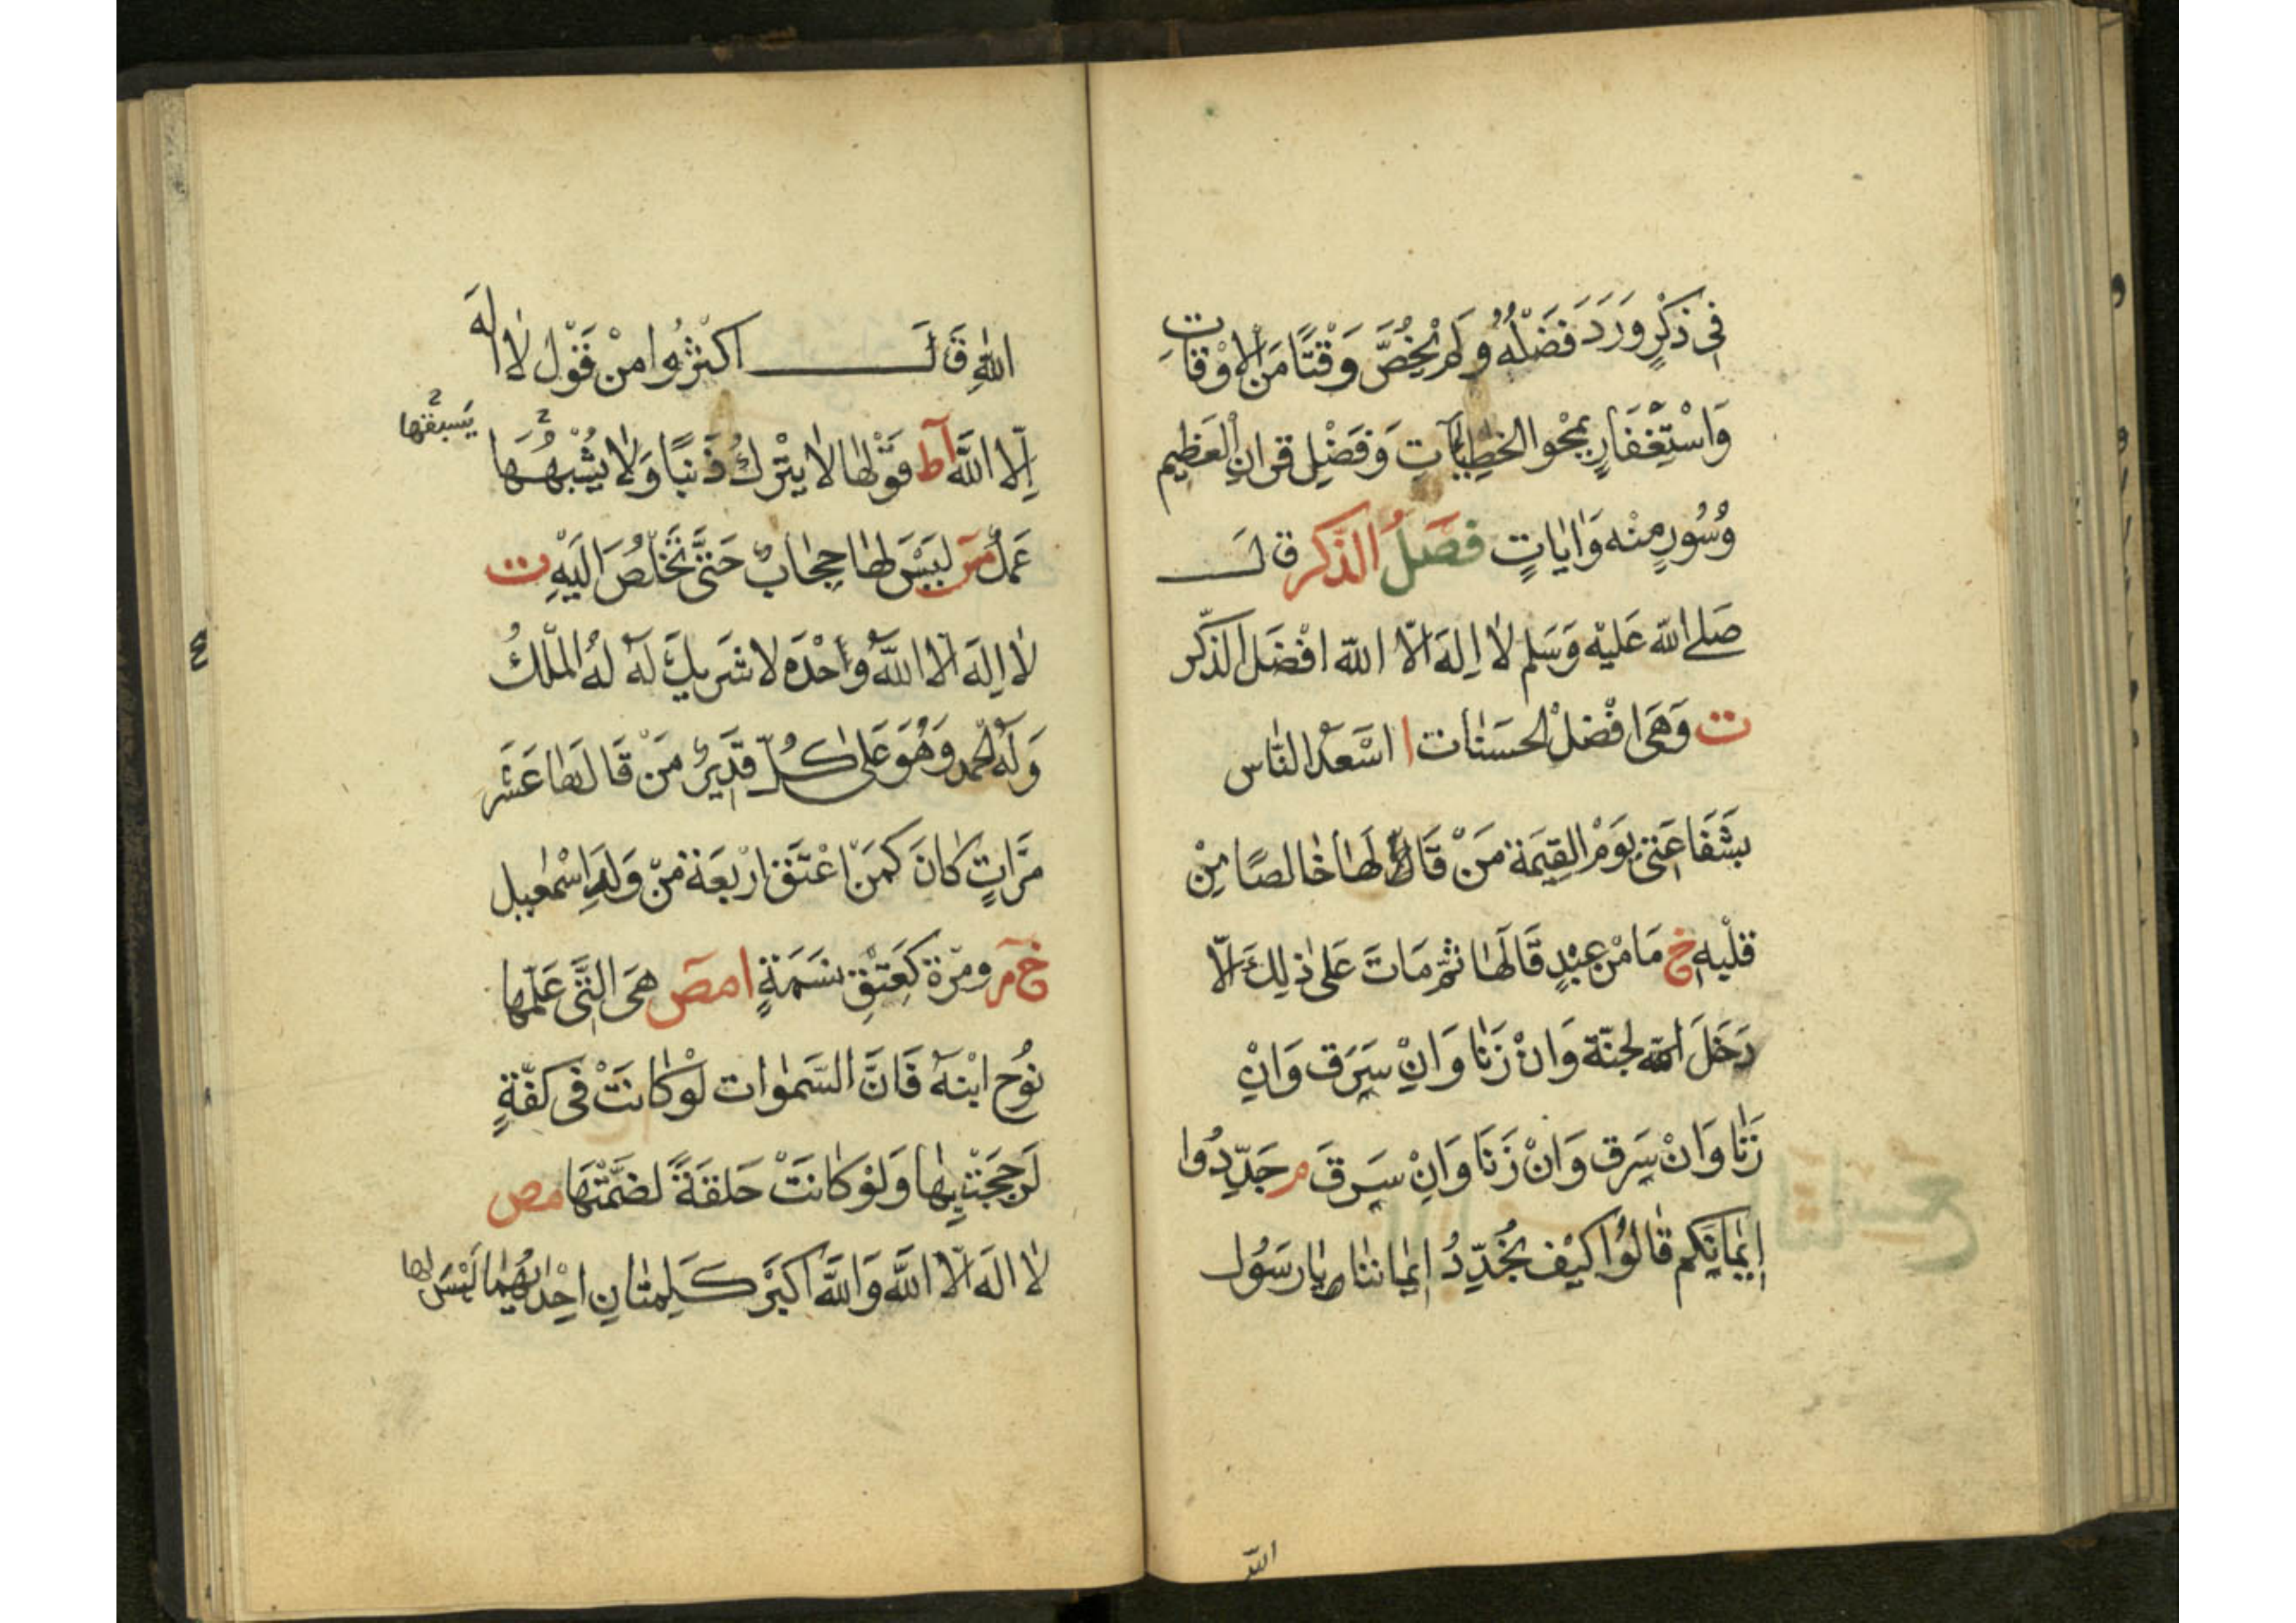 فِى ذِكْرٍ وَرَدَ فَضْلُهُ وَلَمْ يُخَصَّ وَقْتًا مِنَ الْاَوْقَاتِ
وَاسْتِغْفَارٍ يَمْحُو الخَطِيْاٰتِ وَفَضْلِ قران الْعَظِيمِ
وَسُوَرٍ مِنْه وَاٰيَاتٍ فَصْلُ الذّكر قَالَ
صَلى اللّٰه عَليْه وَسَلم لا اِلهَ الّا اللّٰه افْضَل الذّكر
ت وَهِىَ افْضل الحسَنات ا اسْعَدُ النّاس
بشَفَاعَتى يَوْم القِيٰمة مَنْ قَالَهَا خَالصًا مِنْ
قلْبِهِ خ مَا مْن عبْدٍ قَالَهَا ثمّ مَاتَ عَلىٰ ذٰلِكَ الّا
دَخَلَ الجنّة وَانْ زَنَا وَانْ سَرَق وَانْ
زَنَا وَانْ سَرَق وَانْ زَنَا وَانْ سَرَقَ م جَدِّدُوا
اِيمَانَكم قَالُوا كيْف نُجَدِّدُ اِيمَاننَا يٰا رَسُول
اللّٰه
اللّٰهِ قَالَ اكثِرُوا مِنْ قَوْل لا الٰهَ
اِلّا اللّٰه آ ط قَوْلهَا لا يتْرك ذَنبًا وَلا يُشْبِهُهَا
يَسبقها
عَمَلٌ مس ليْسَ لهَا حِجَابٌ حَتّى تَخْلُصَ اليْهِ ت
لا اِلهَ الّا اللّٰهُ وَاحْدَه لا شَرِيكَ لَهُ لهُ الْملْكُ
وَلَهُ الحمد وَهُوَ عَلى كُلّ قَدِيرٌ مَنْ قَالهَا عَشر
مَرّاتٍ كَانَ كمَنْ اعْتَقَ ارْبعَة مِنْ وَلَدِ اسْمٰعيل
خ م ومرّة كعِتْقِ نسَمَةٍ ا مص هىَ الّتى عَلّمهَا
نُوح ابْنهُ فَانَّ السّمٰوات لوْ كانَتْ فى كفّةٍ
لَرَجحَتْ بِهَا وَلوْ كَانَتْ حَلقَةً لضَمَّتْهَا مص
لا الٰه الّا اللّٰه وَاللّٰه اكبَر كَلِمتَانِ احْدٰيهُمَا لَيْسَ لها